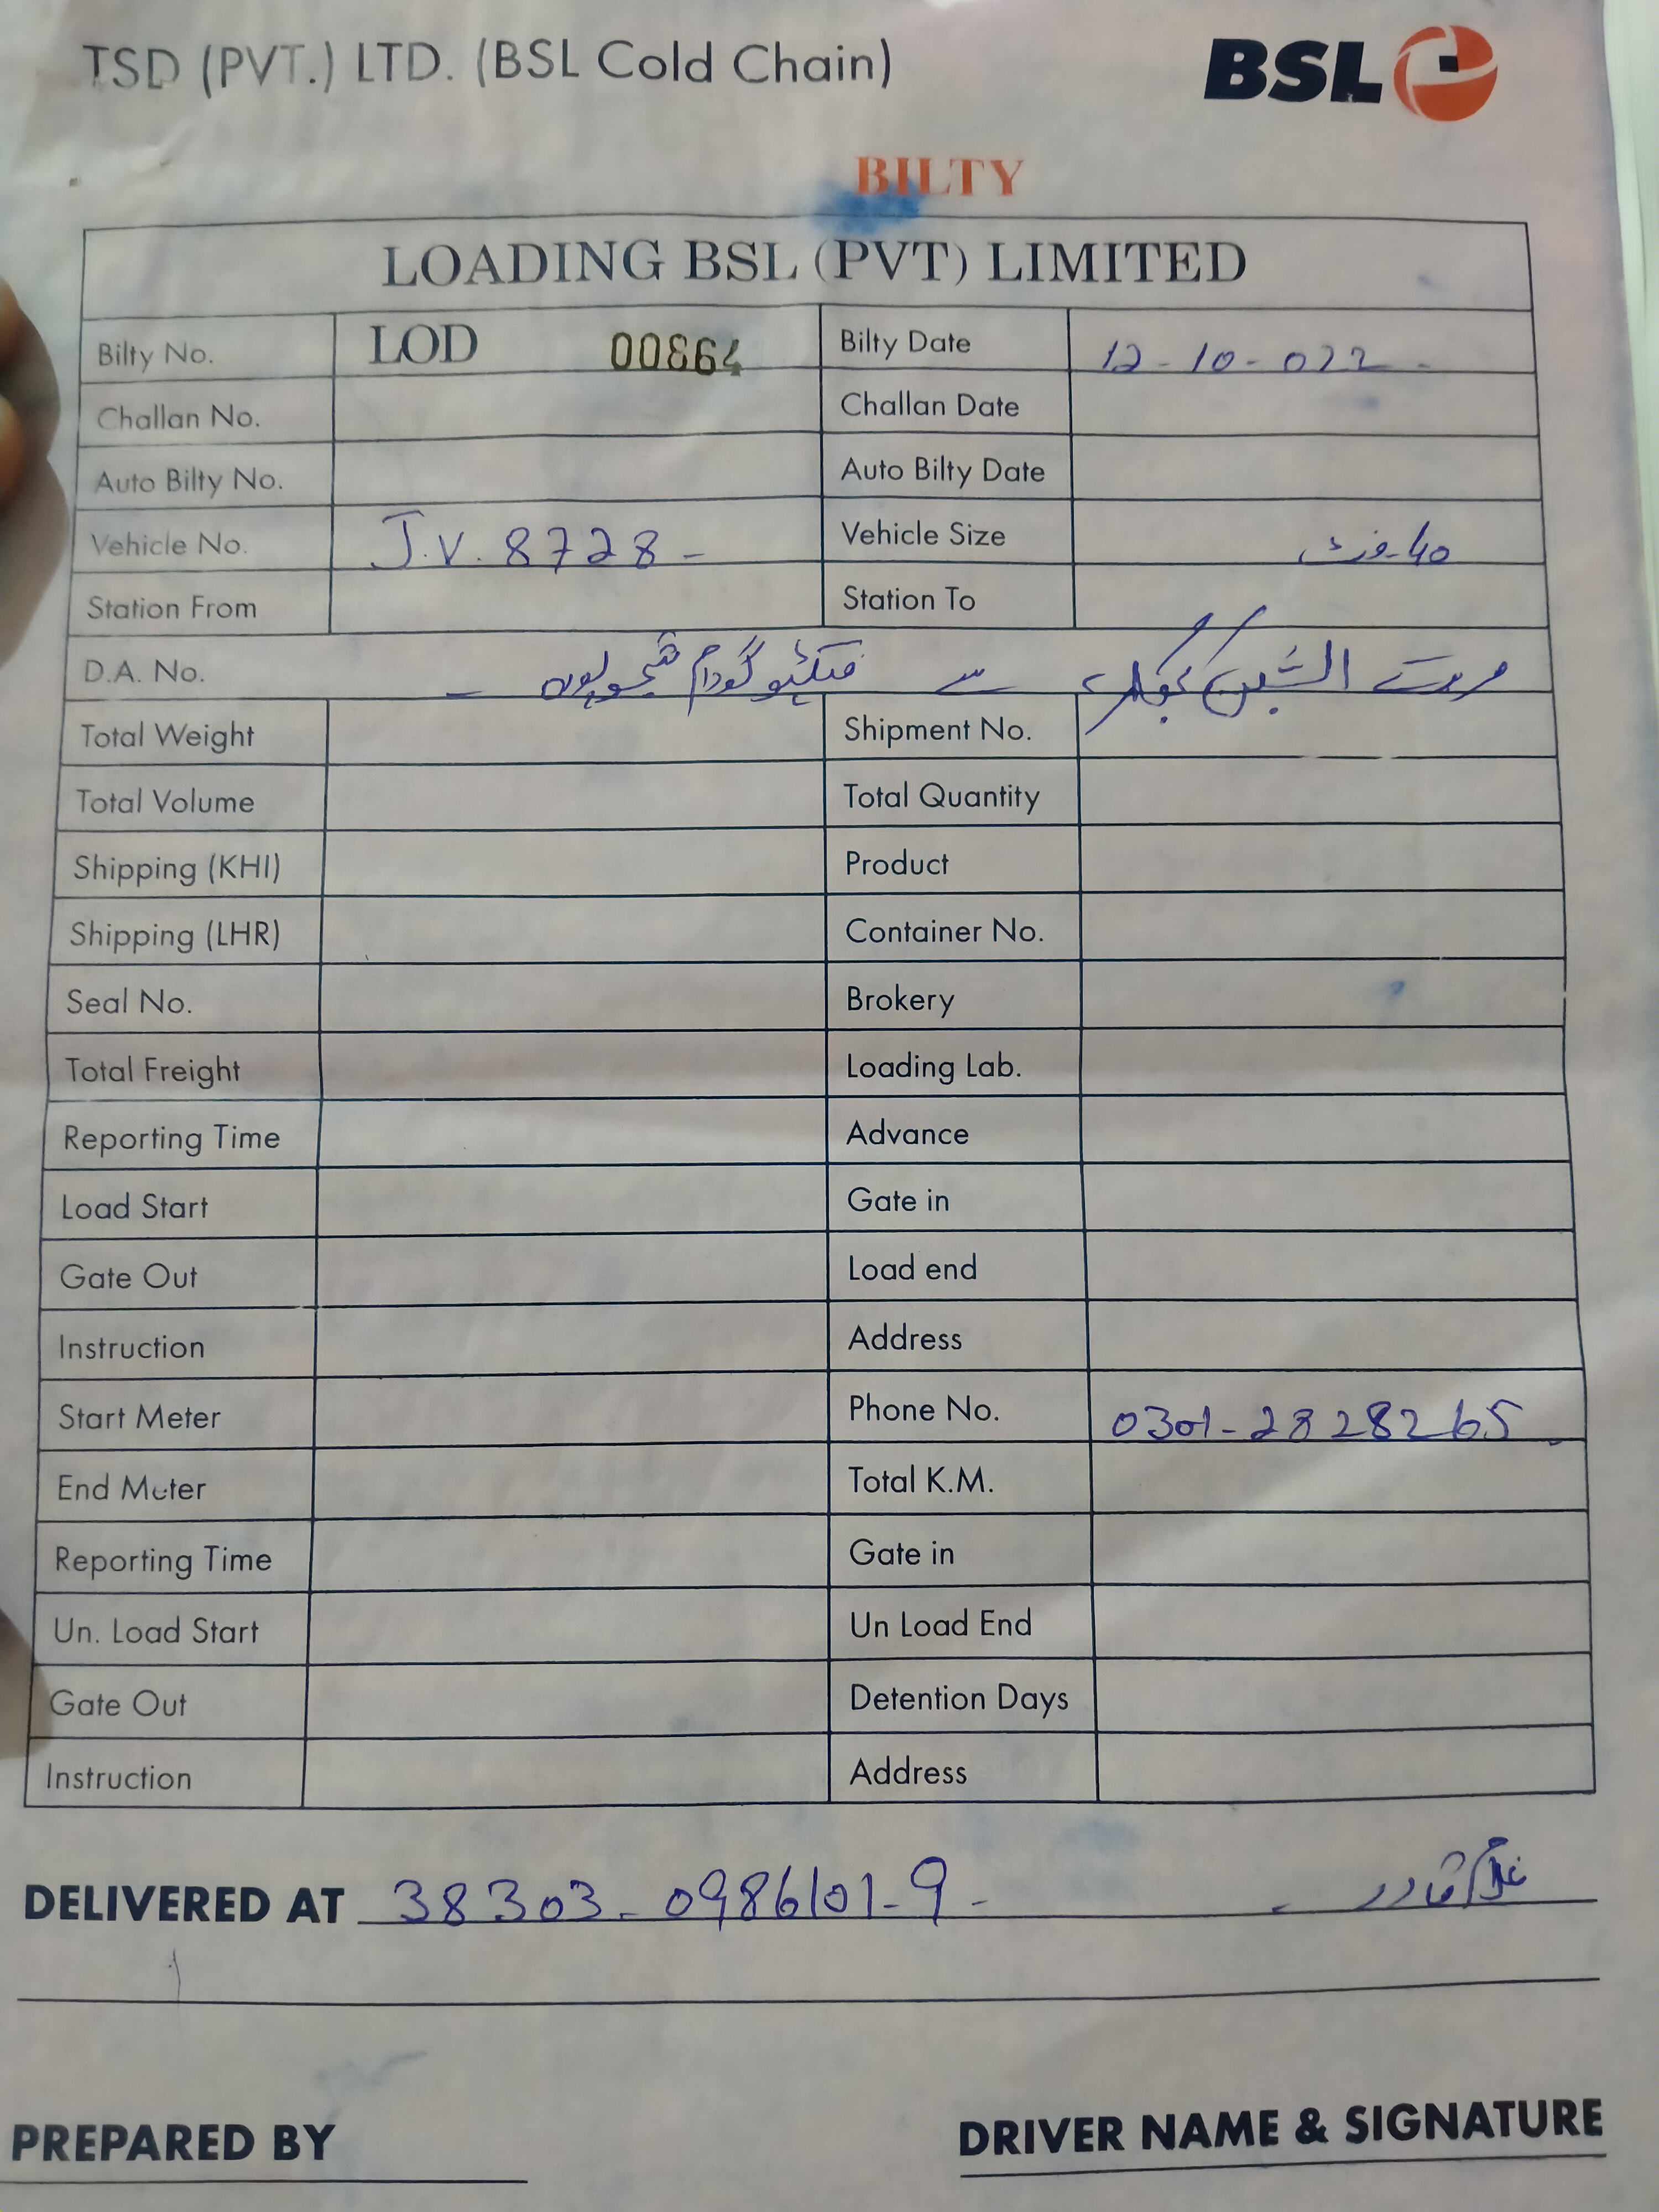 TSD (PVT.) LTD. (BSL Cold Chain)
BSL
BILTY
LOADING BSL (PVT) LIMITED
Bilty No. LOD 00864 Bilty Date 12-10-022
Challan No. Challan Date
Auto Bilty No. Auto Bilty Date
Vehicle No. J.V. 8728 - Vehicle Size 40 فٹ
Station From Station To
D.A. No. سے گودام
Total Weight Shipment No.
Total Volume Total Quantity
Shipping (KHI) Product
Shipping (LHR) Container No.
Seal No. Brokery
Total Freight Loading Lab.
Reporting Time Advance
Load Start Gate in
Gate Out Load end
Instruction Address
Start Meter Phone No. 0301-2828265
End Meter Total K.M.
Reporting Time Gate in
Un. Load Start Un Load End
Gate Out Detention Days
Instruction Address
DELIVERED AT 38303-0986101-9- غلام قادر
PREPARED BY DRIVER NAME & SIGNATURE